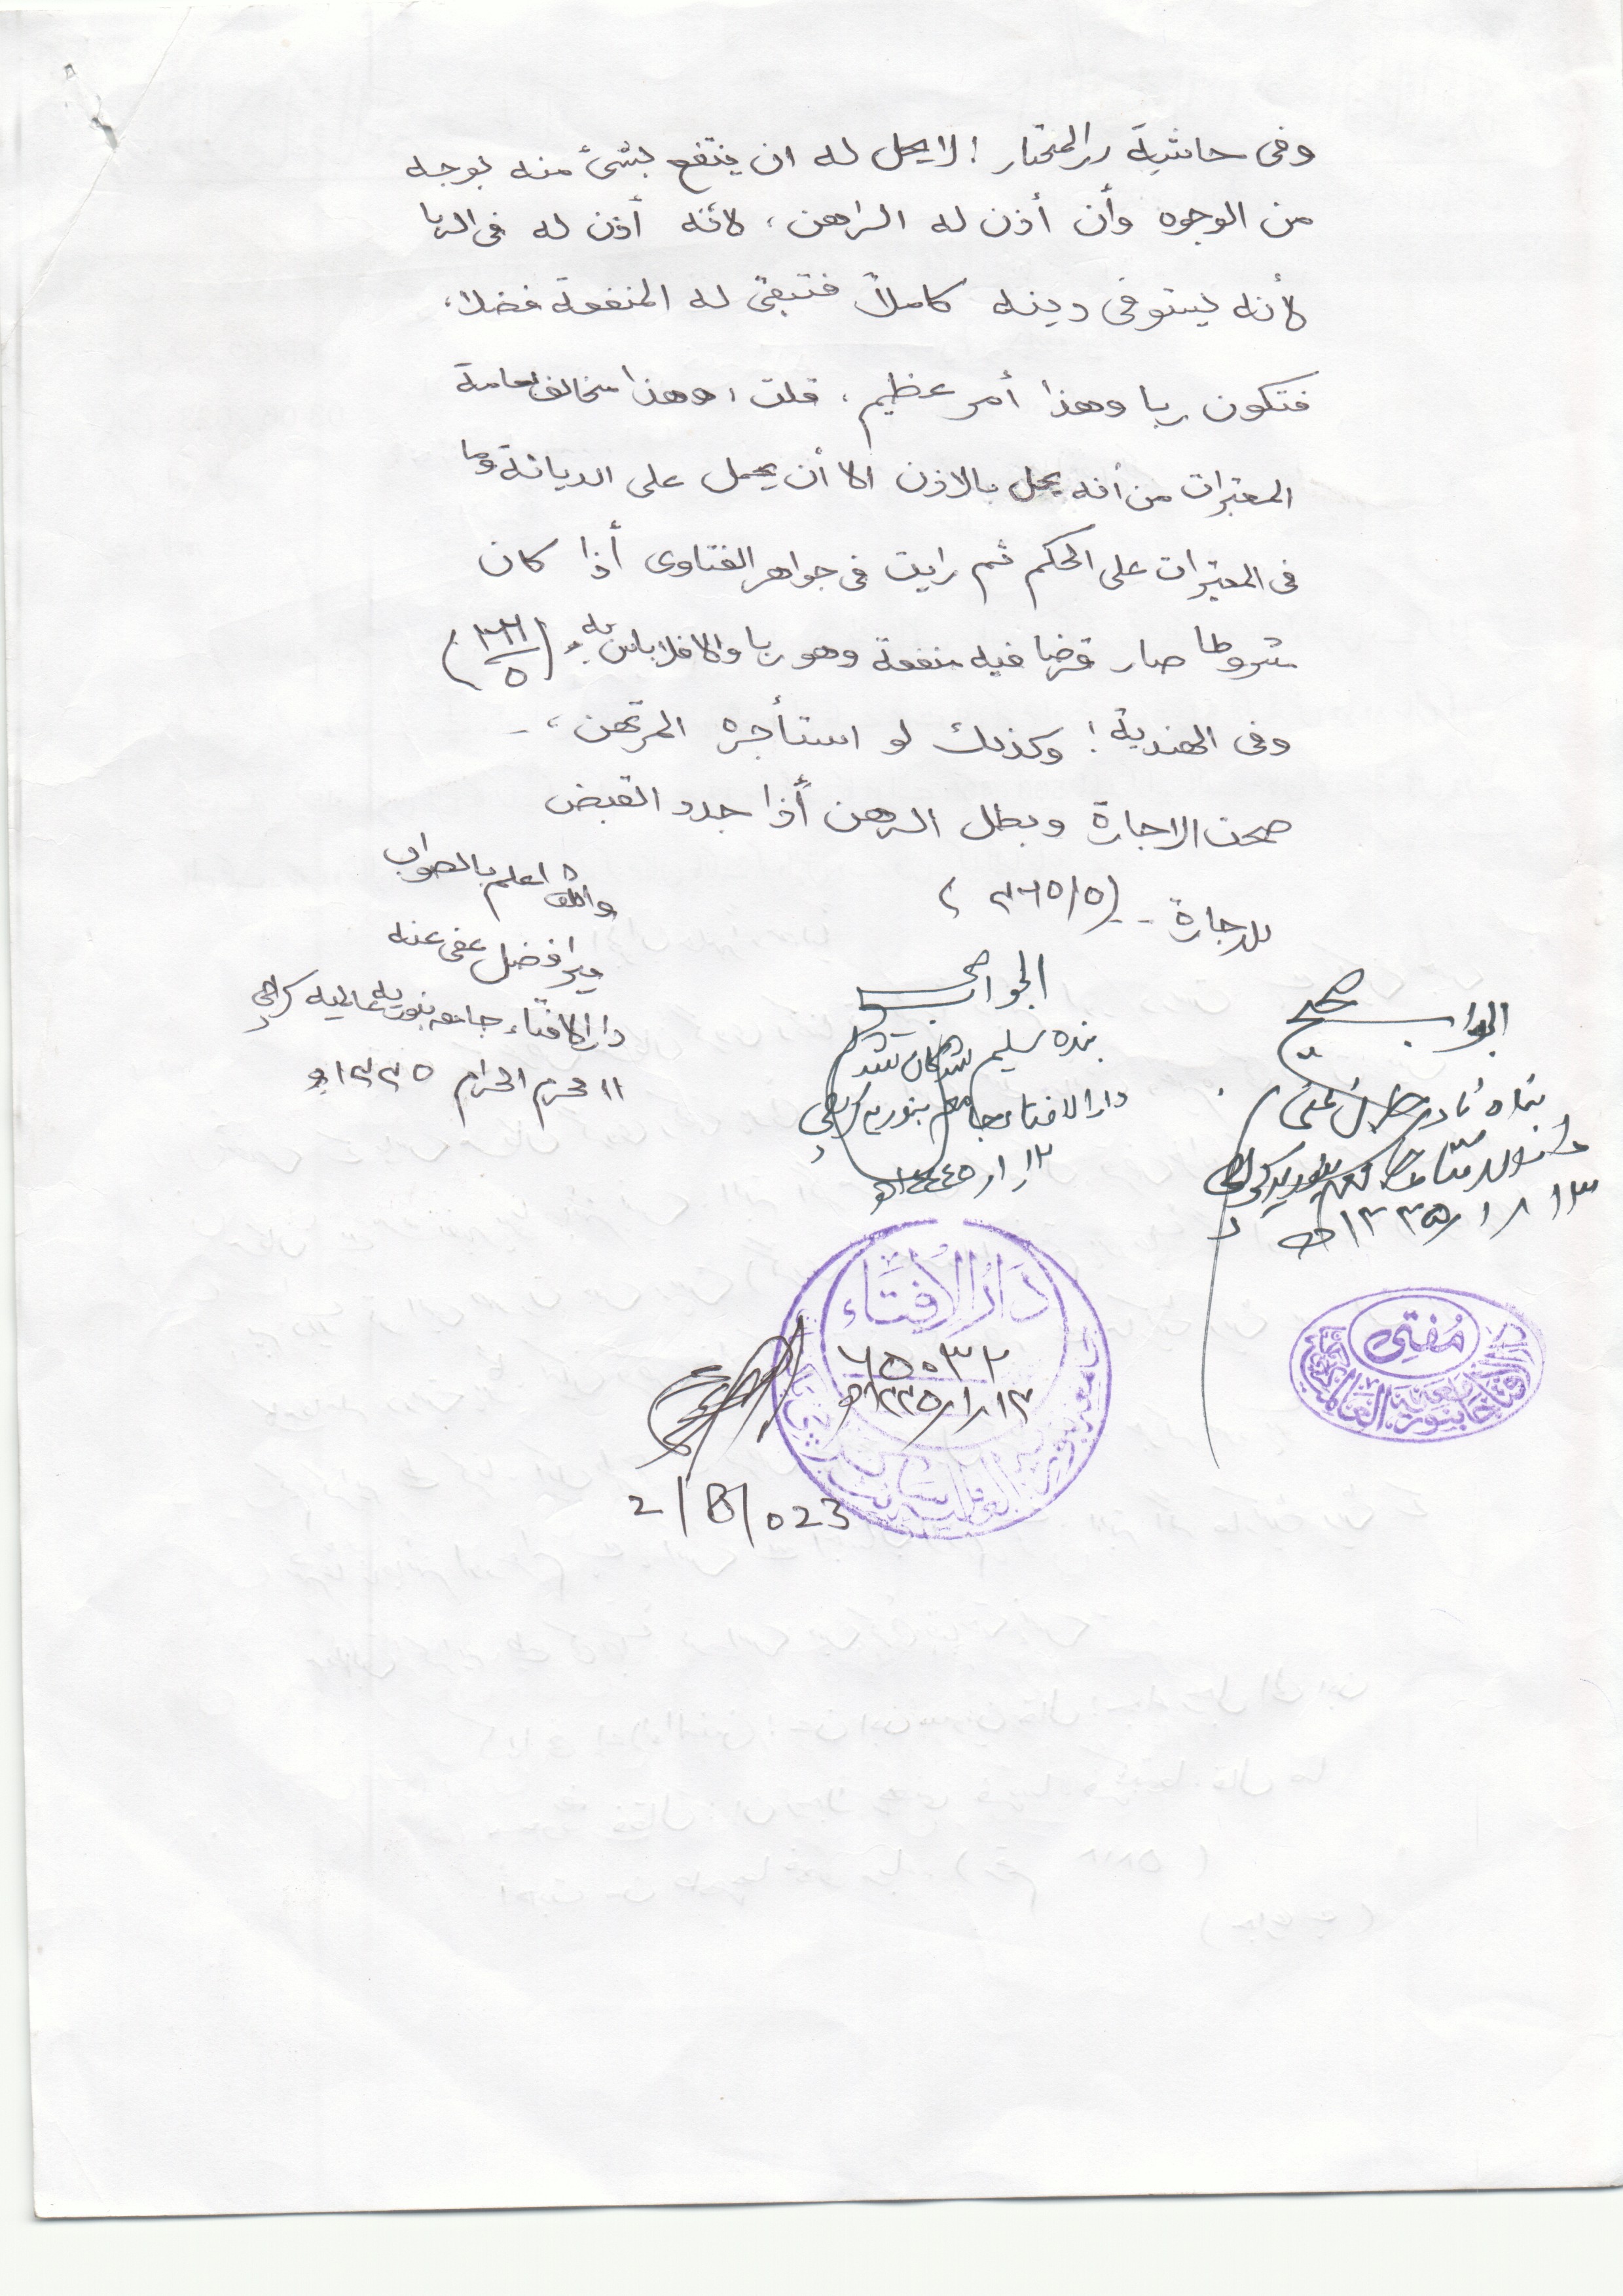 وفى حاشية رد المحتار: لا يحل له ان ينتفع بشئ منه بوجه
من الوجوه وأن أذن له الراهن، لأنه أذن له فى الربا
لأنه يستوفى دينه كاملاً فتبقى له المنفعة فضلا،
فتكون ربا وهذا أمر عظيم، قلت: وهذا مخالف لعامة
المعتبرات من أنه يحل بالاذن الا أن يحمل على الديانة وما
فى المعتبرات على الحكم ثم رايت فى جواهر الفتاوى أذا كان
مشروطا صار قرضا فيه منفعة وهو ربا والا فلا باس به
وفى الهندية: وكذلك لو استأجره المرتهن،
صحت الاجارة وبطل الرهن أذا جدد القبض
للاجارة - (٥/٤٦٥)
والله اعلم بالصواب
میر افضل عفی عنہ
دار الافتاء جامعہ بنوریہ عالمیہ کراچی
١١ محرم الحرام ١٤٤٥ھ
الجواب صحیح
بندہ سلیم
دار الافتاء جامعہ بنوریہ کراچی
الجواب صحیح
بندہ نادر جان
دار الافتاء جامعہ بنوریہ کراچی
دَارُ الْاِفْتَاء
٦٥٠٣٢
2/8/023
مُفتِی